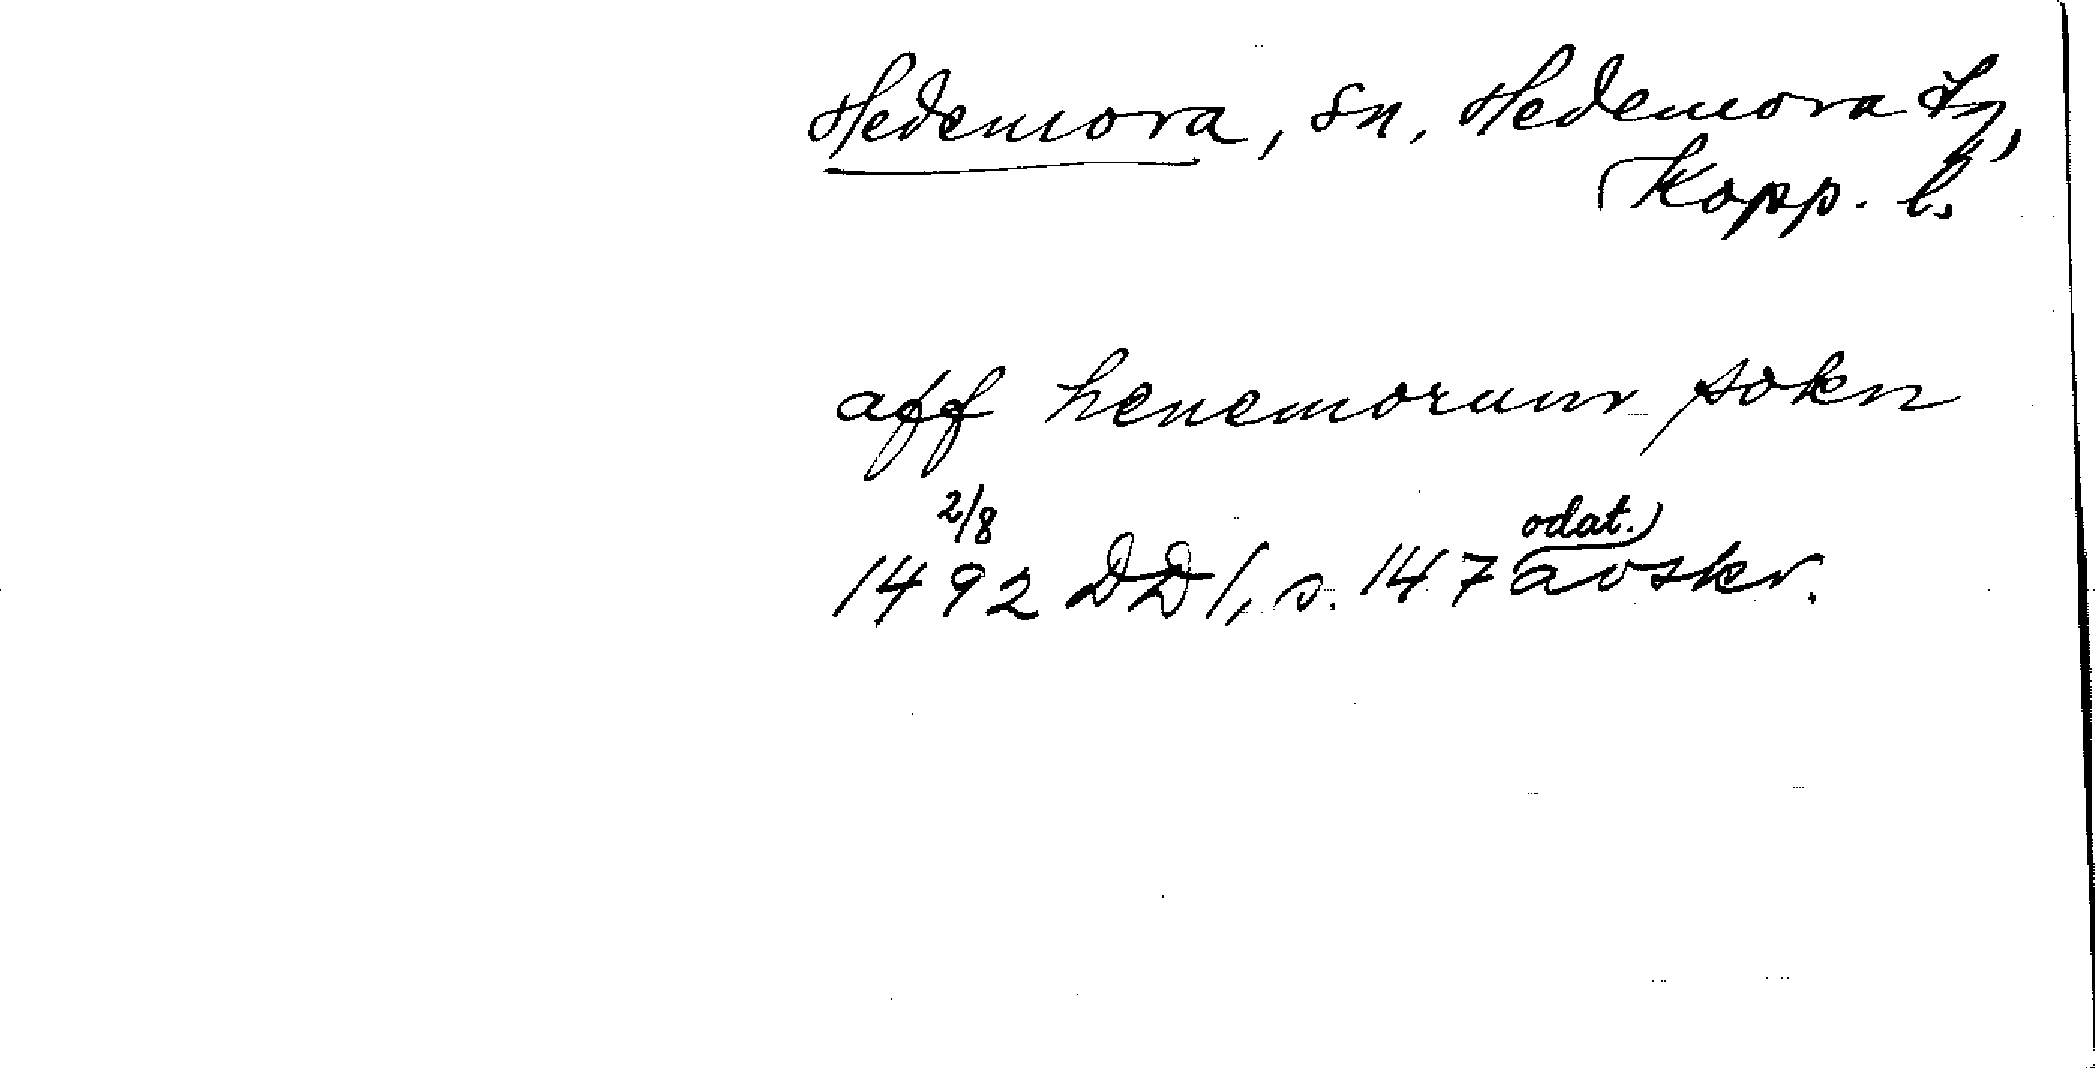 Hedemora, sn, Hedemora tg,
Kopp. l.
aff henemorum sokn
2/8
odat.)
1492 DD 1, s. 147 avskr.